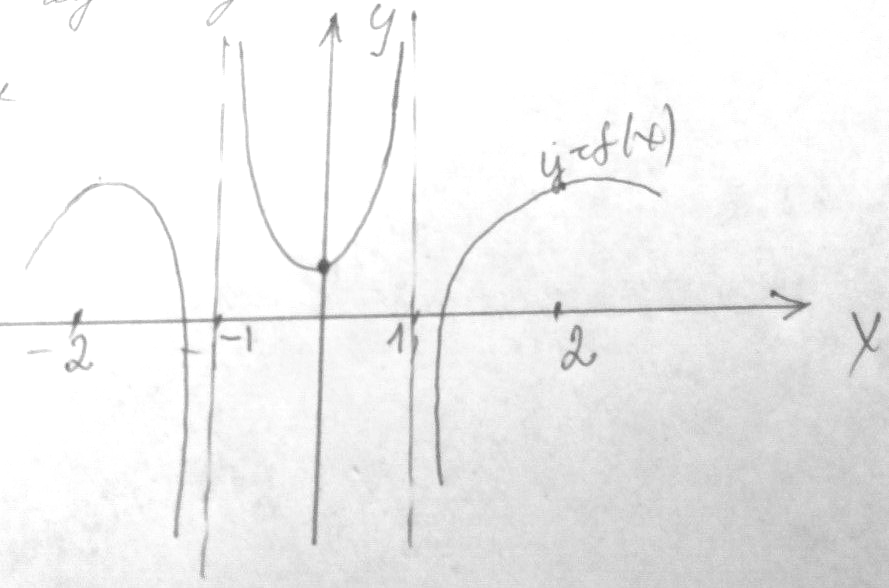 y
y=f(x)
-2 -1 1 2 X